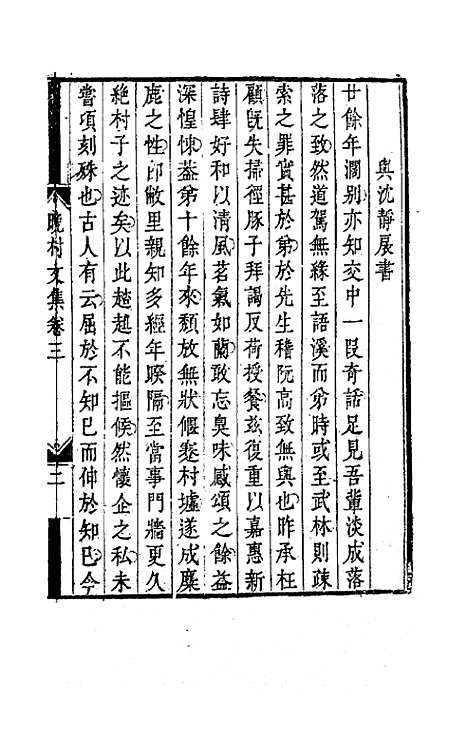 與沈靜展書
廿餘年濶别亦知交中一叚奇話足見吾輩淡成落
落之致然道駕無緣至語溪而弟時或至武林則疎
索之罪實甚於弟於先生稽阮高致無與也昨承枉
顧旣失掃徑豚子拜謁反荷授餐兹復重以嘉惠新
詩肆好和以清風茗氣如蘭敢忘臭味感頌之餘益
深惶悚葢弟十餘年來頽放無狀偃蹇村墟遂成麋
鹿之性卽敝里親知多經年暌隔至當事門牆更久
絶村子之迹矣以此趑趄不能摳候然懷企之私未
嘗頃刻殊也古人有云屈於不知巳而伸於知巳今
晚村文集卷三
二